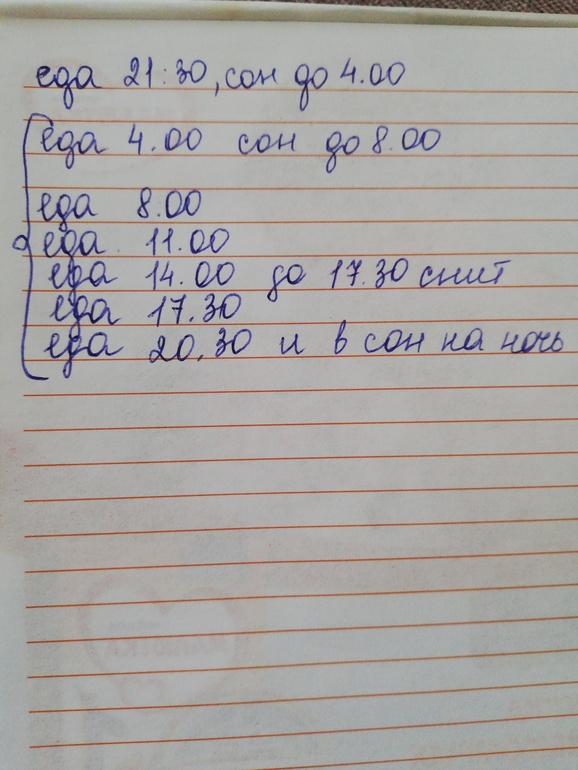 еда 21:30, сон до 4.00
еда 4.00 сон до 8.00
еда 8.00
еда 11.00
еда 14.00 до 17.30 спит
еда 17.30
еда 20.30 и в сон на ночь
МАЛЮТКА